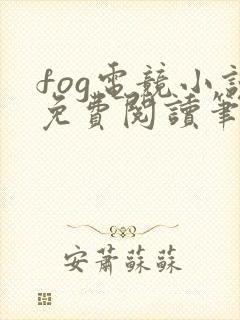 fog電競小說
免費閱讀筆
安蕭蘇蘇